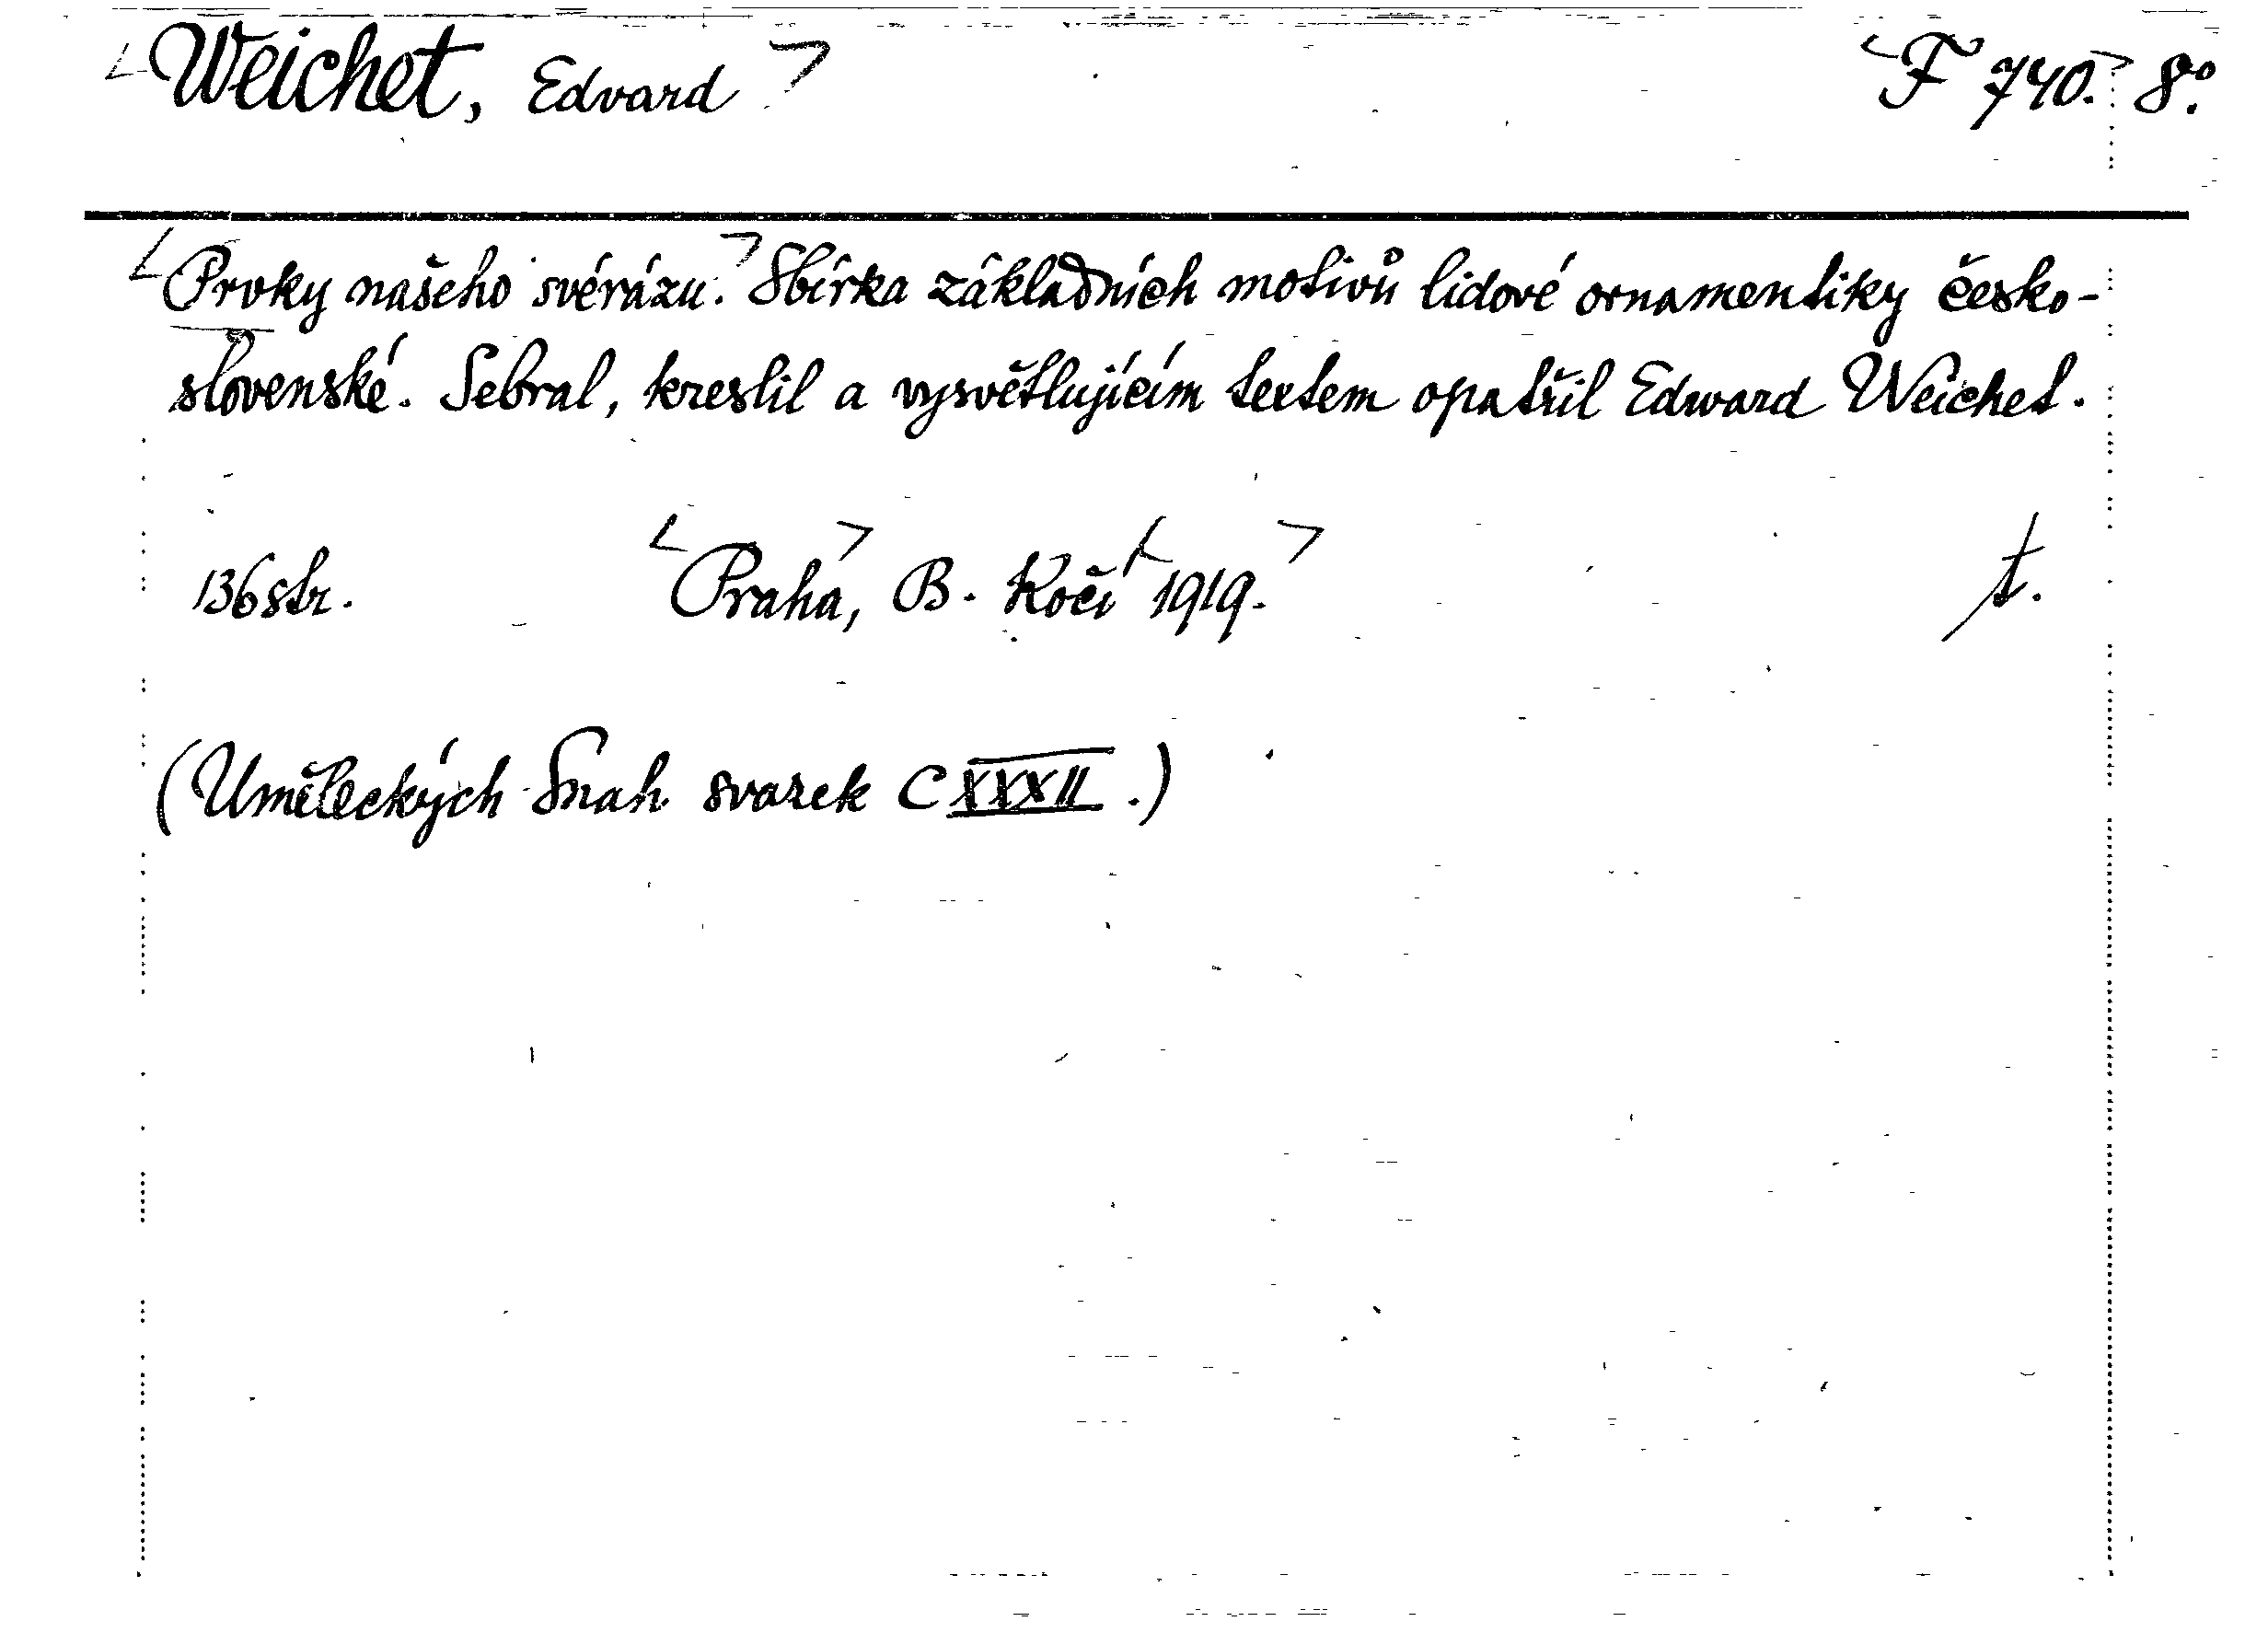 <Weichet, Edvard> <F 740.> 8°.
<Prvky našeho svérázu.> Sbírka základních motivů lidové ornamentiky česko-
slovenské. Sebral, kreslil a vysvětlujícím textem opatřil Edward Weichet.
136 str. <Praha>, B. Kočí <1919.> t.
(Uměleckých Snah svazek CXXXII.)